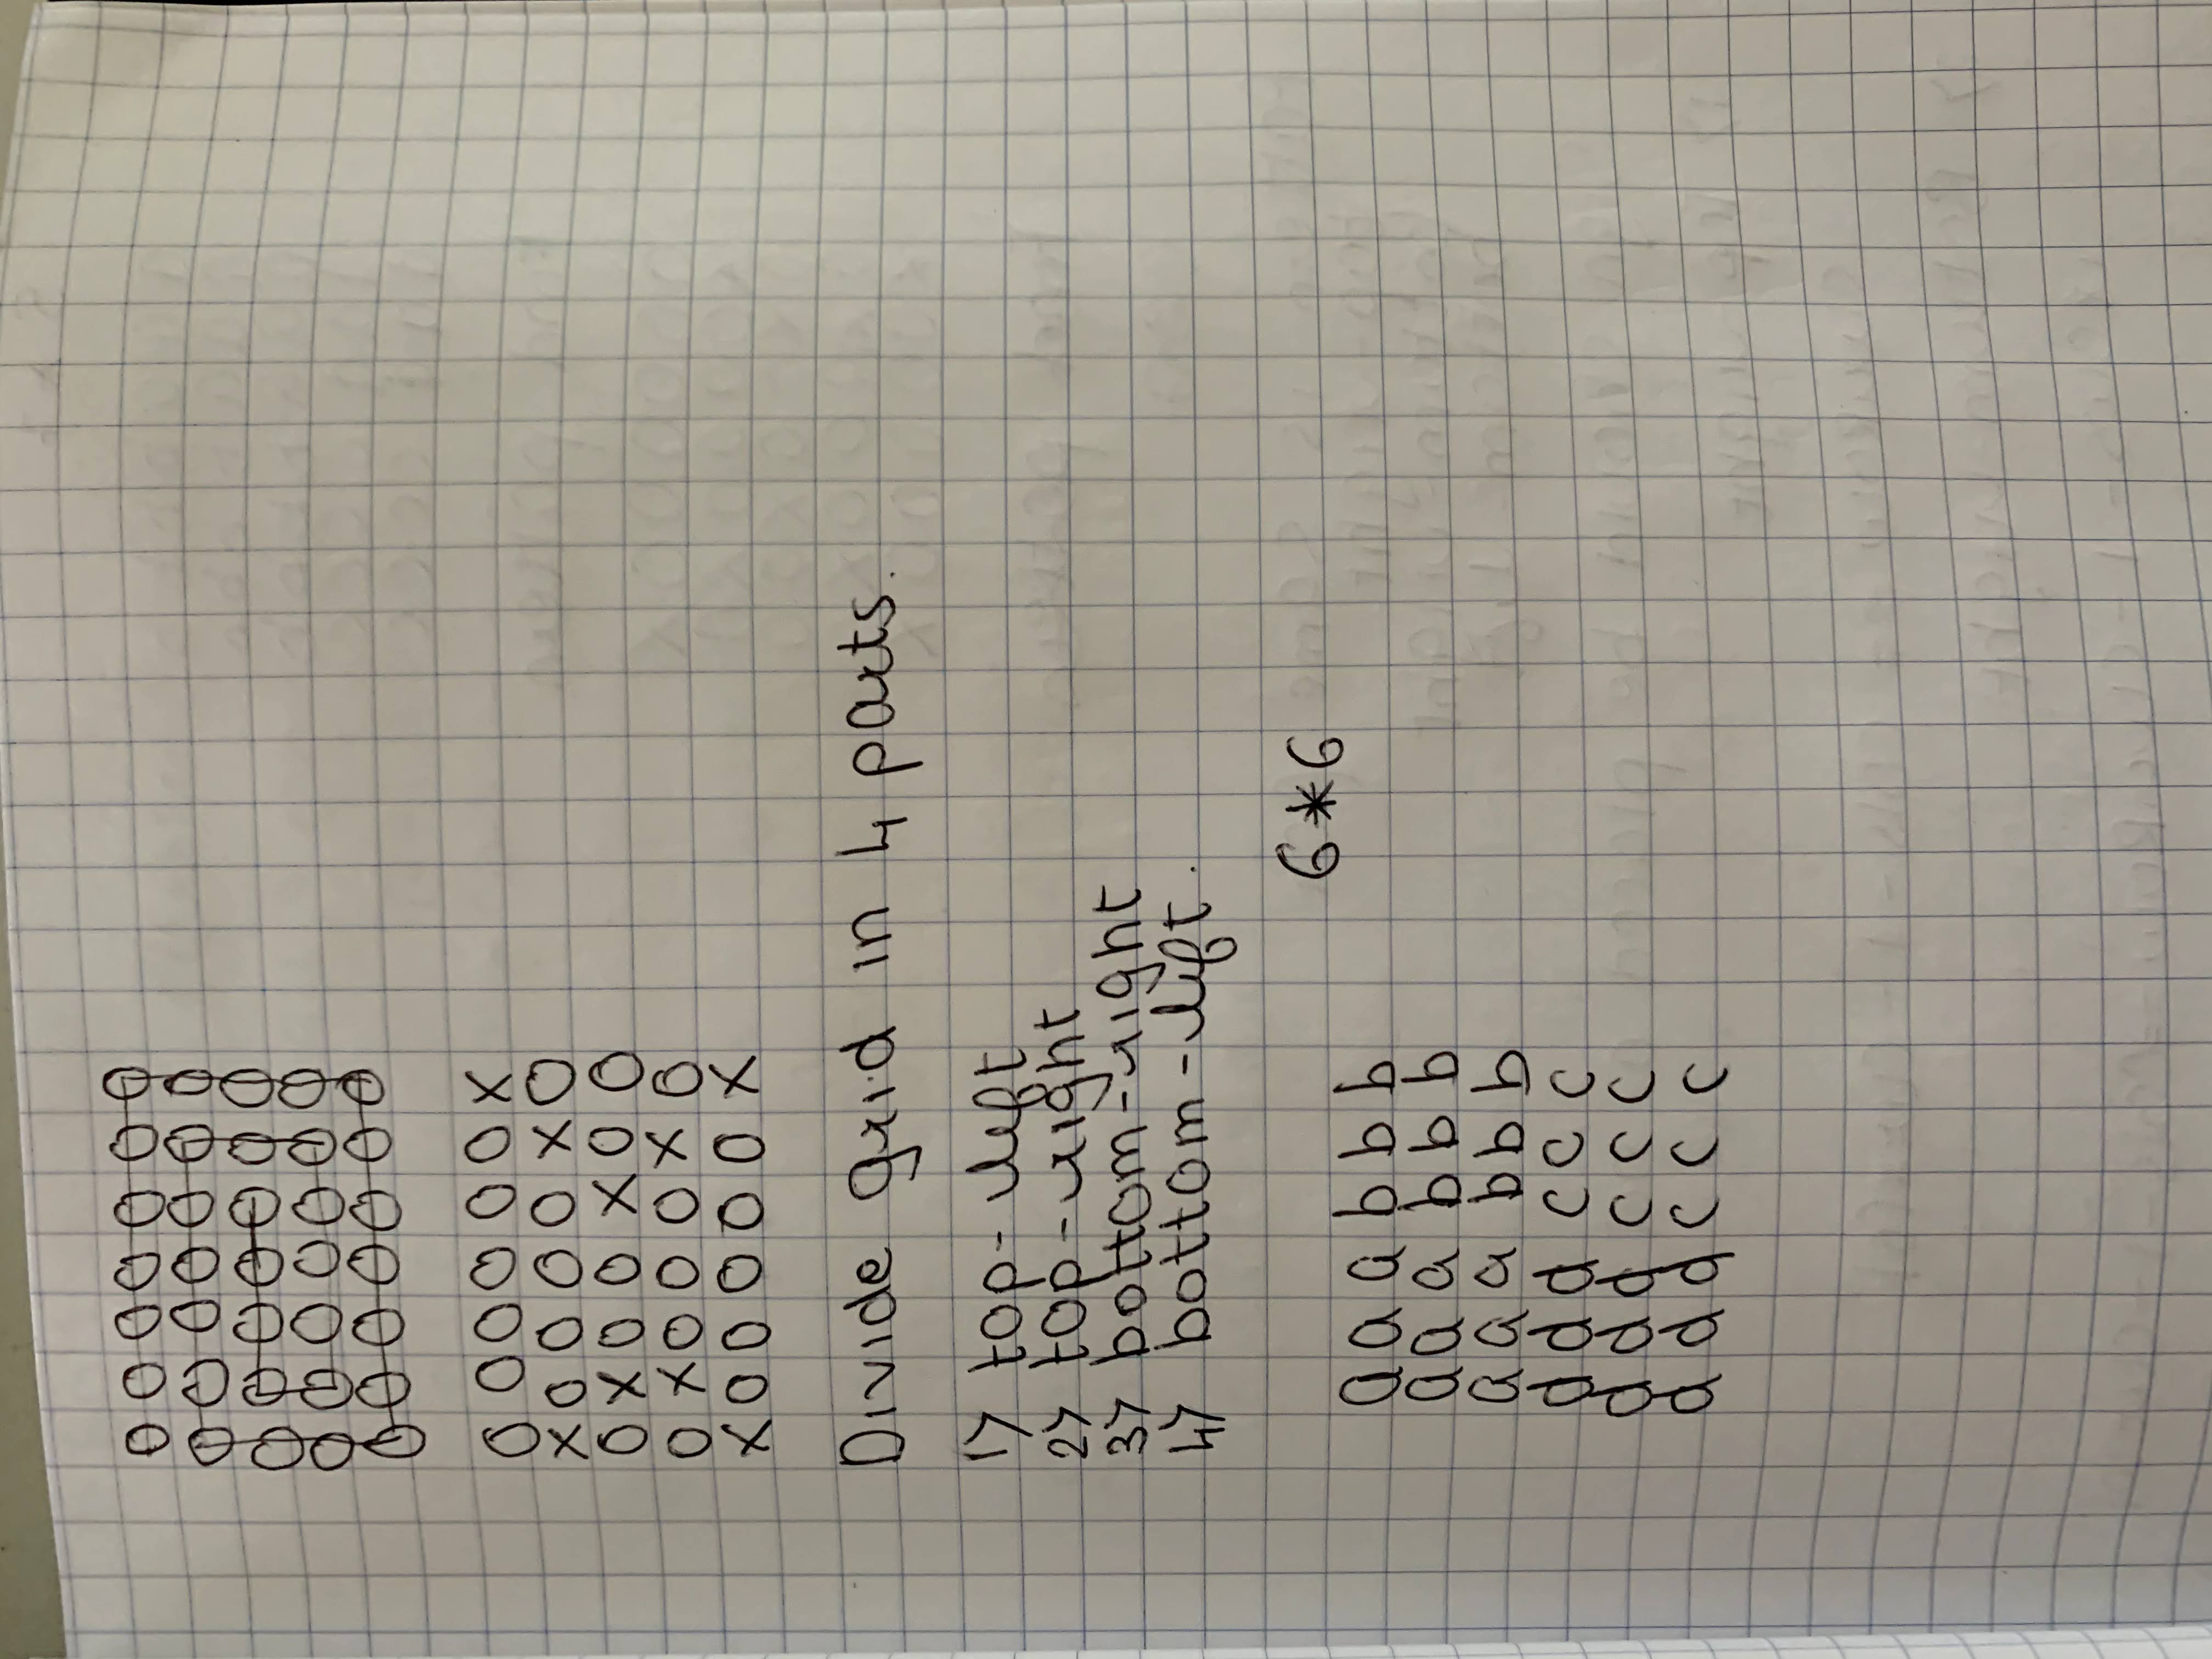 0 0 0 0 0 0 0
0 0 0 0 0 0 0
0 0 0 0 0 0 0
0 0 0 0 0 0 0
0 0 0 0 0 0 0
0 0 0 0 0 0 x
x 0 0 0 0 x 0
0 x 0 0 x 0 0
0 x 0 0 0 x 0
x 0 0 0 0 0 x
Divide grid in 4 parts.
1> top-left
2> top-right
3> bottom-right
4> bottom-left.
6*6
a a a b b b
a a a b b b
a a a b b b
d d d c c c
d d d c c c
d d d c c c